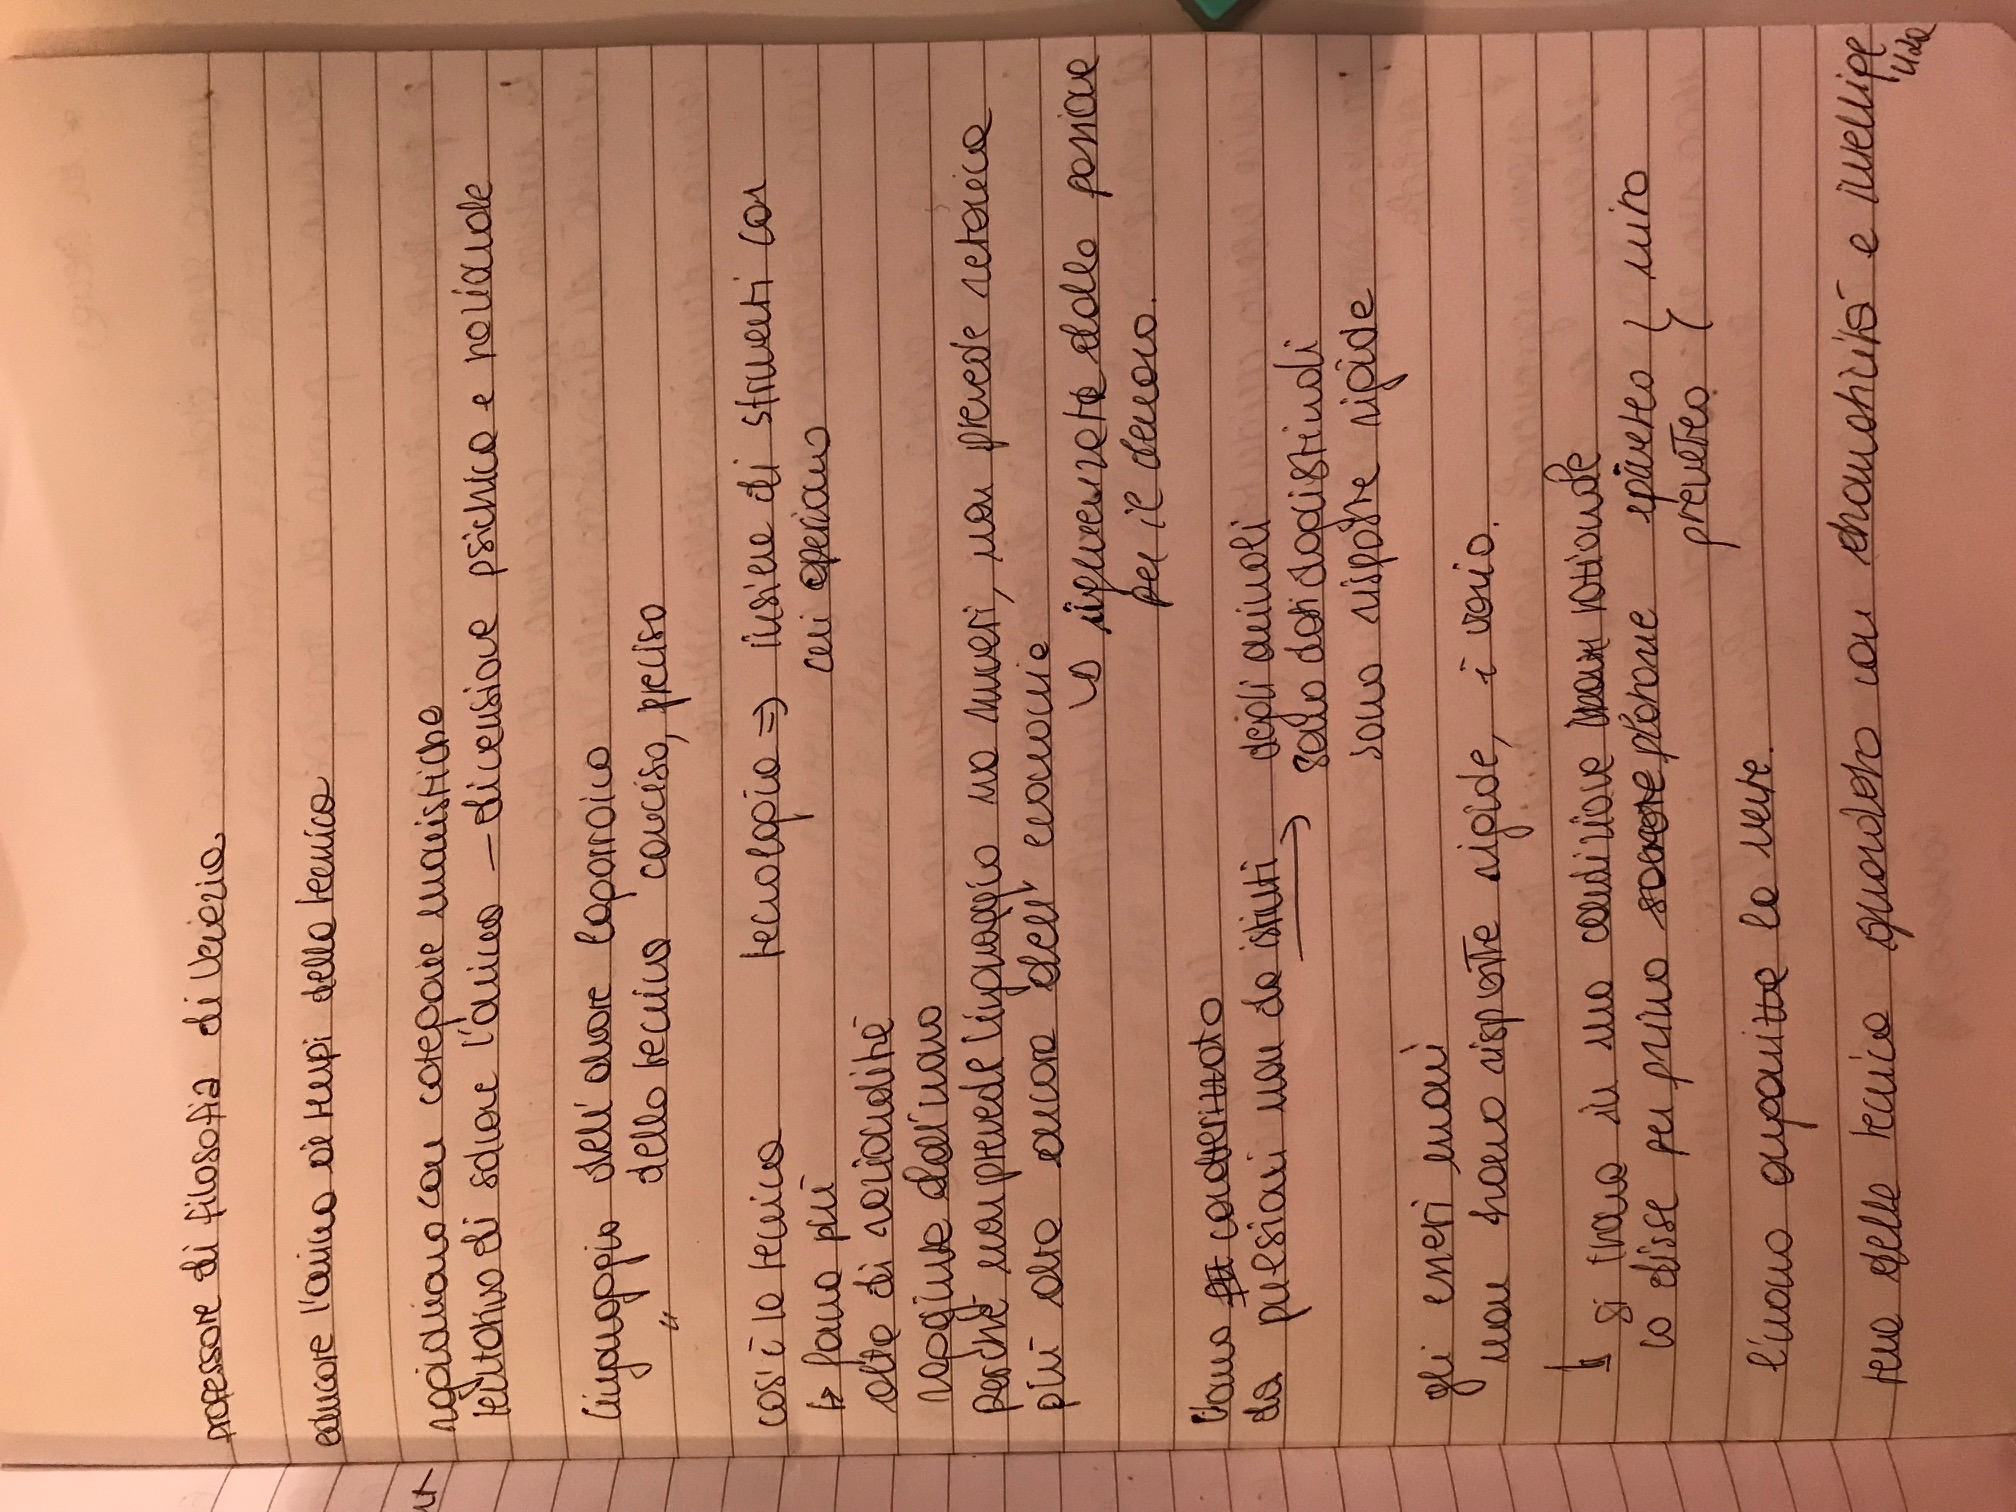 professore di filosofia di Venezia
educare l'anima ai tempi della tecnica
ragioniamo con categorie umanistiche
tentativo di salvare l'anima – dimensione psichica e relazionale
linguaggio dell'amore
" della tecnica conciso, preciso
cos'è la tecnica tecnologia => insieme di strumenti con
cui operiamo
↳ forma più
alta di razionalità
raggiunta dall'uomo
perchè non prevede linguaggio ma numeri, non prevede retorica
più alta ancora dell'economia
↳ influenzata dalla passione
per il denaro.
l'uomo caratterizzato
da pulsioni non da istinti → degli animali
sono dati dagli stimoli
sono risposte rigide
gli esseri umani
non hanno risposte rigide, è vario.
↳ si trova in una condizione non razionale
lo disse per primo platone (mito
prometeo)
l'uomo la mente.
tema della tecnica guardato con drammaticità e intelligen